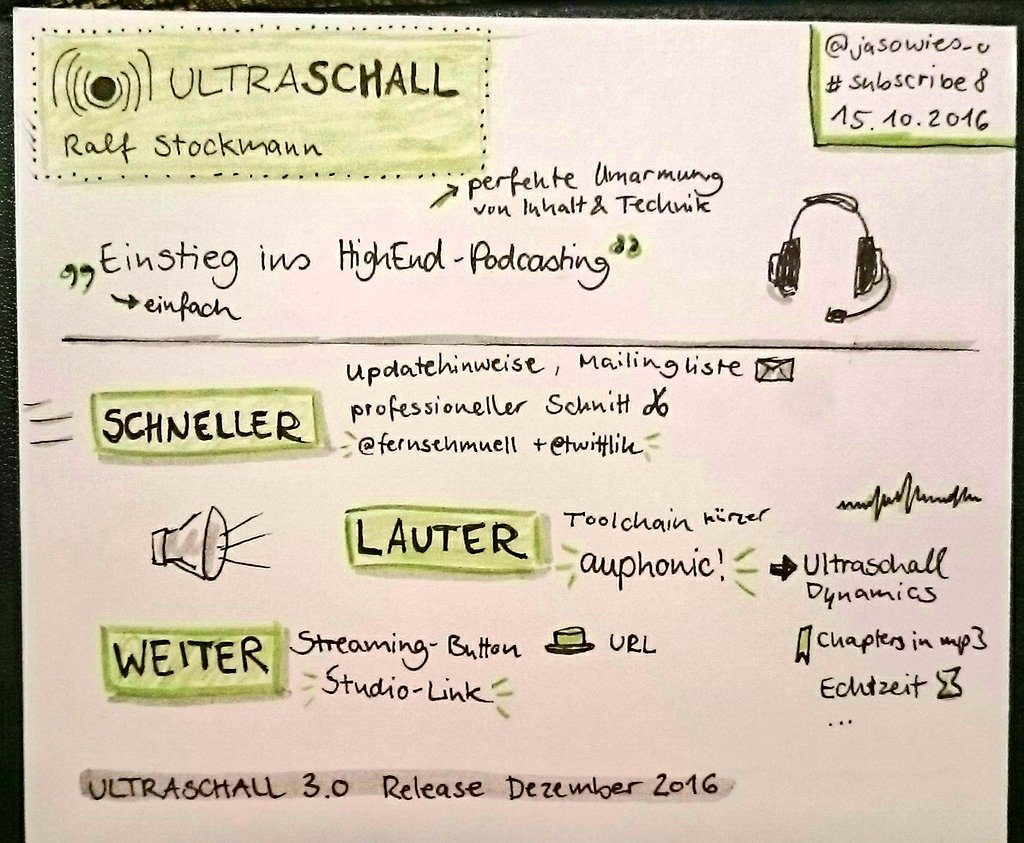 ULTRASCHALL
Ralf Stockmann
@jasowies_o
#subscribe8
15.10.2016
→ perfekte Umarmung
von Inhalt & Technik
„Einstieg ins HighEnd-Podcasting“
→ einfach
SCHNELLER
Updatehinweise, Mailingliste
professioneller Schnitt
@fernsehmuell + @twittlik
LAUTER
Toolchain kürzer
auphonic!
→ Ultraschall
Dynamics
WEITER
Streaming-Button
URL
Studio-Link
Chapters in mp3
Echtzeit
...
ULTRASCHALL 3.0 Release Dezember 2016